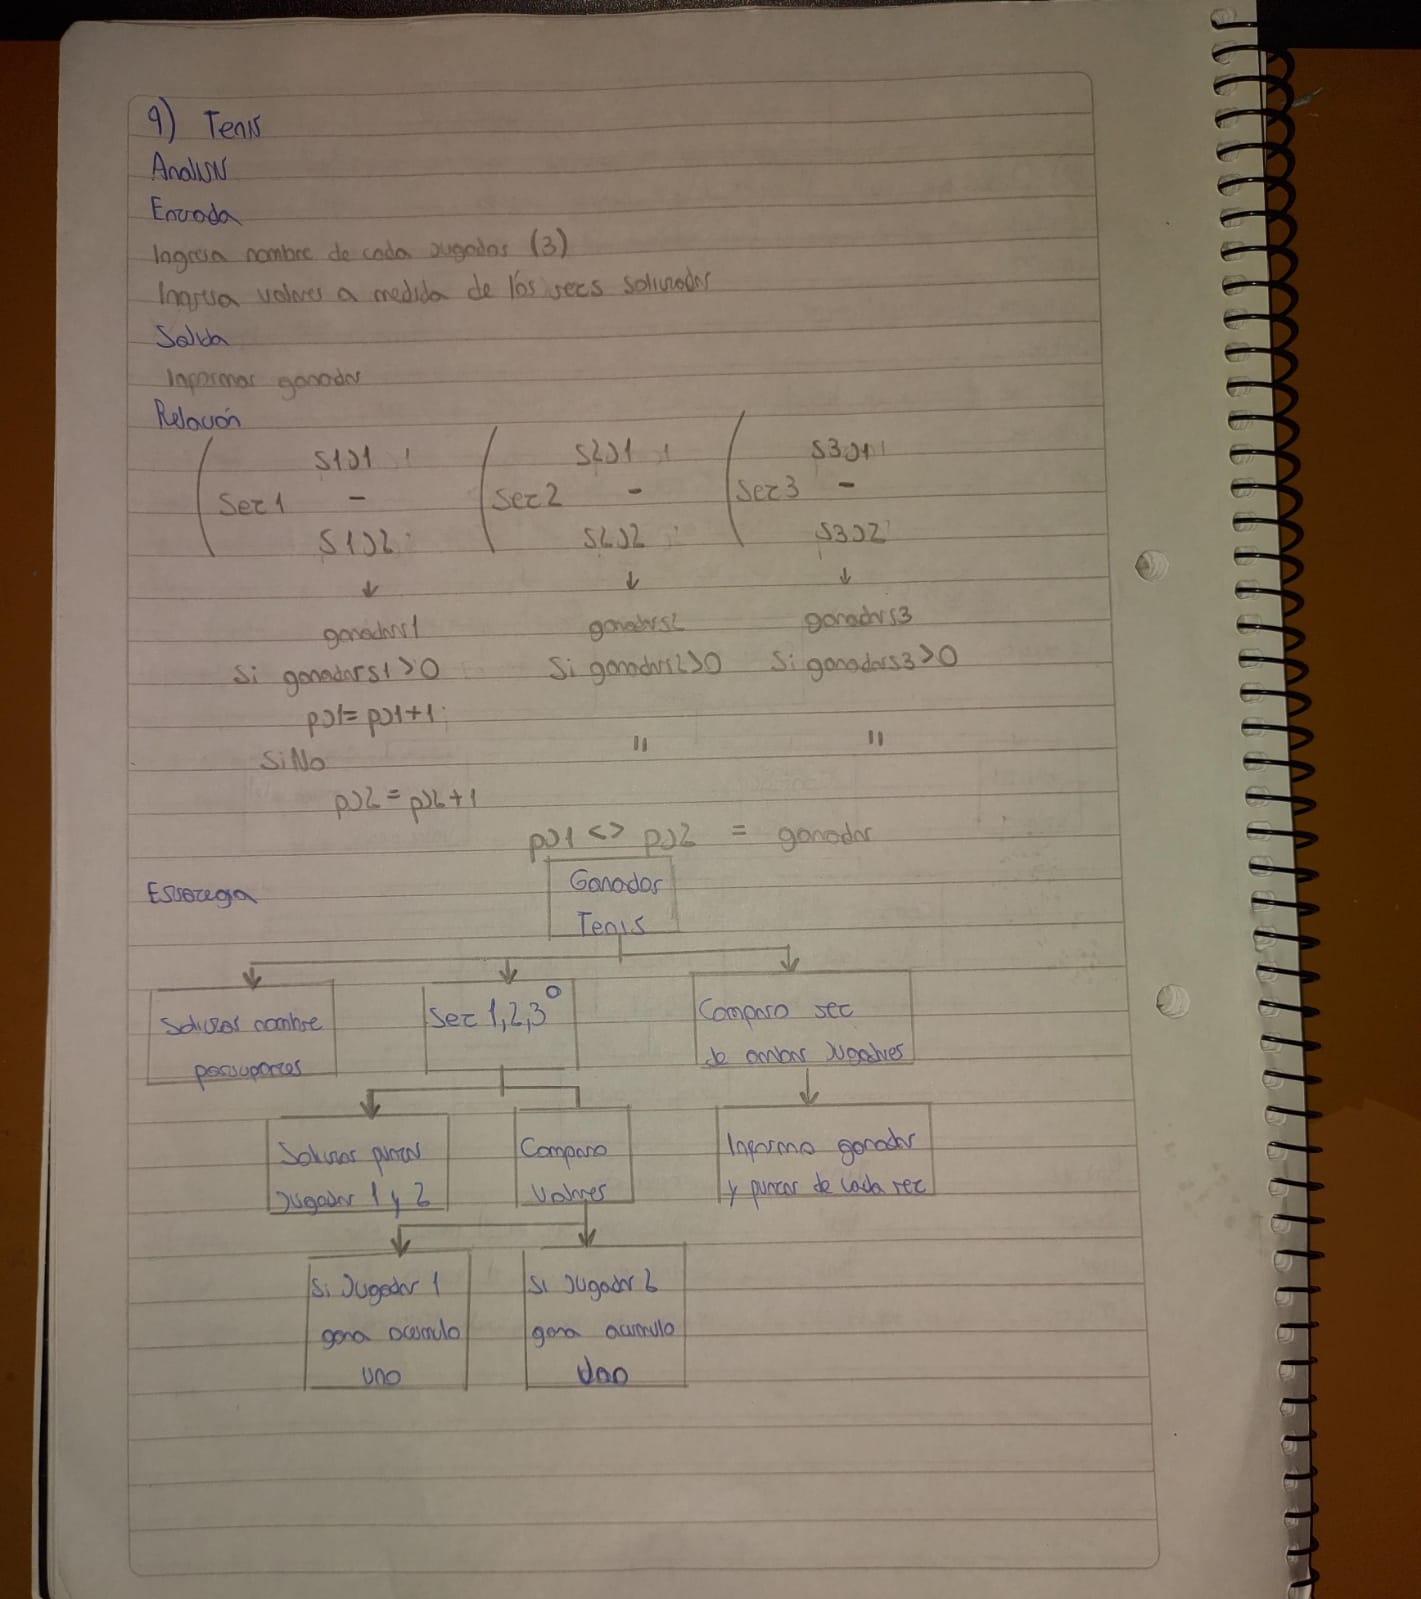 9) Tenis
Analisis
Entrada
Ingresa nombre de cada jugador (3)
Ingresa valores a medida de los sets solicitados
Salida
Informar ganador
Relación
S1J1 S2J1 S3J1
Set 1 - Set 2 - Set 3 -
S1J2 S2J2 S3J2
↓ ↓ ↓
ganadors1 ganadors2 ganadors3
Si ganadors1 >0 Si ganadors2>0 Si ganadors3>0
pJ1= pJ1+1
SiNo " "
pJ2 = pJ2+1
pJ1 <> pJ2 = ganador
Estratega
Ganador
Tenis
Solicitar nombre
participantes
Set 1,2,3
Comparo set
de ambos Jugadores
Solicitar puntos
Jugador 1 y 2
Comparo
valores
Informo ganador
y puntos de cada set
Si Jugador 1
gana acumulo
uno
Si Jugador 2
gana acumulo
uno